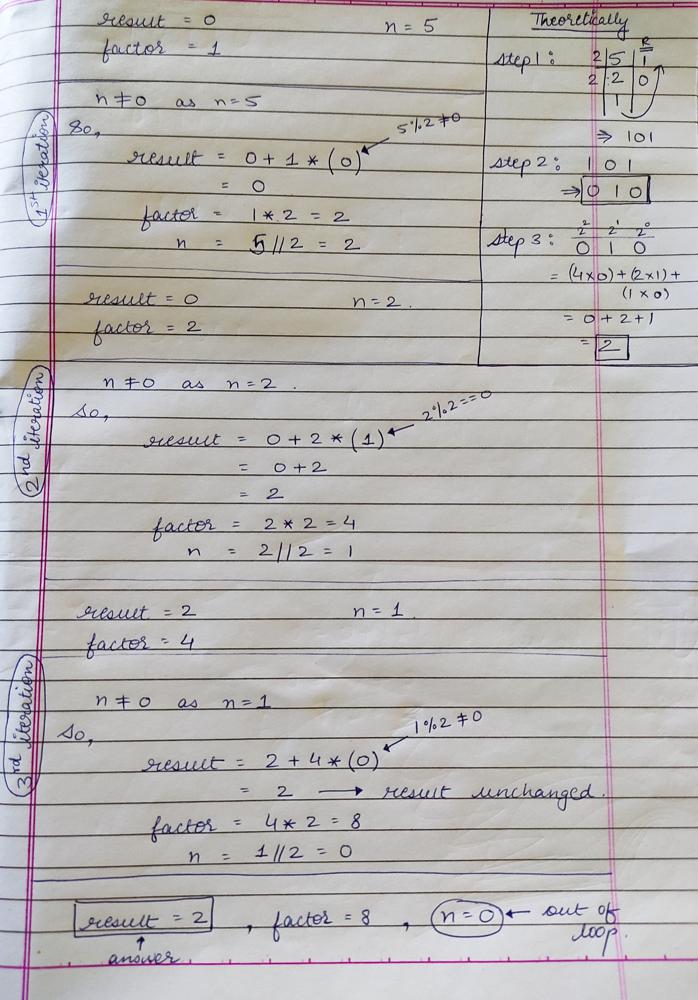 result = 0 n = 5
factor = 1
n ≠ 0 as n = 5
So,
1st iteration
result = 0 + 1 * (0) 5%2 ≠ 0
= 0
factor = 1 * 2 = 2
n = 5 // 2 = 2
result = 0 n = 2.
factor = 2
Theoretically
R
Step 1: 2 5 1
2 2 0
1
⇒ 101
Step 2: 1 0 1
⇒ 0 1 0
Step 3: 2² 2¹ 2⁰
0 1 0
= (4×0) + (2×1) +
(1×0)
= 0 + 2 + 1
= 2
n ≠ 0 as n = 2.
So,
2nd iteration
result = 0 + 2 * (1) 2%2 == 0
= 0 + 2
= 2
factor = 2 * 2 = 4
n = 2 // 2 = 1
result = 2 n = 1.
factor = 4
n ≠ 0 as n = 1
So,
3rd iteration
result = 2 + 4 * (0) 1%2 ≠ 0
= 2 → result unchanged.
factor = 4 * 2 = 8
n = 1 // 2 = 0
result = 2 , factor = 8 , n = 0 ← out of
loop.
↑
answer